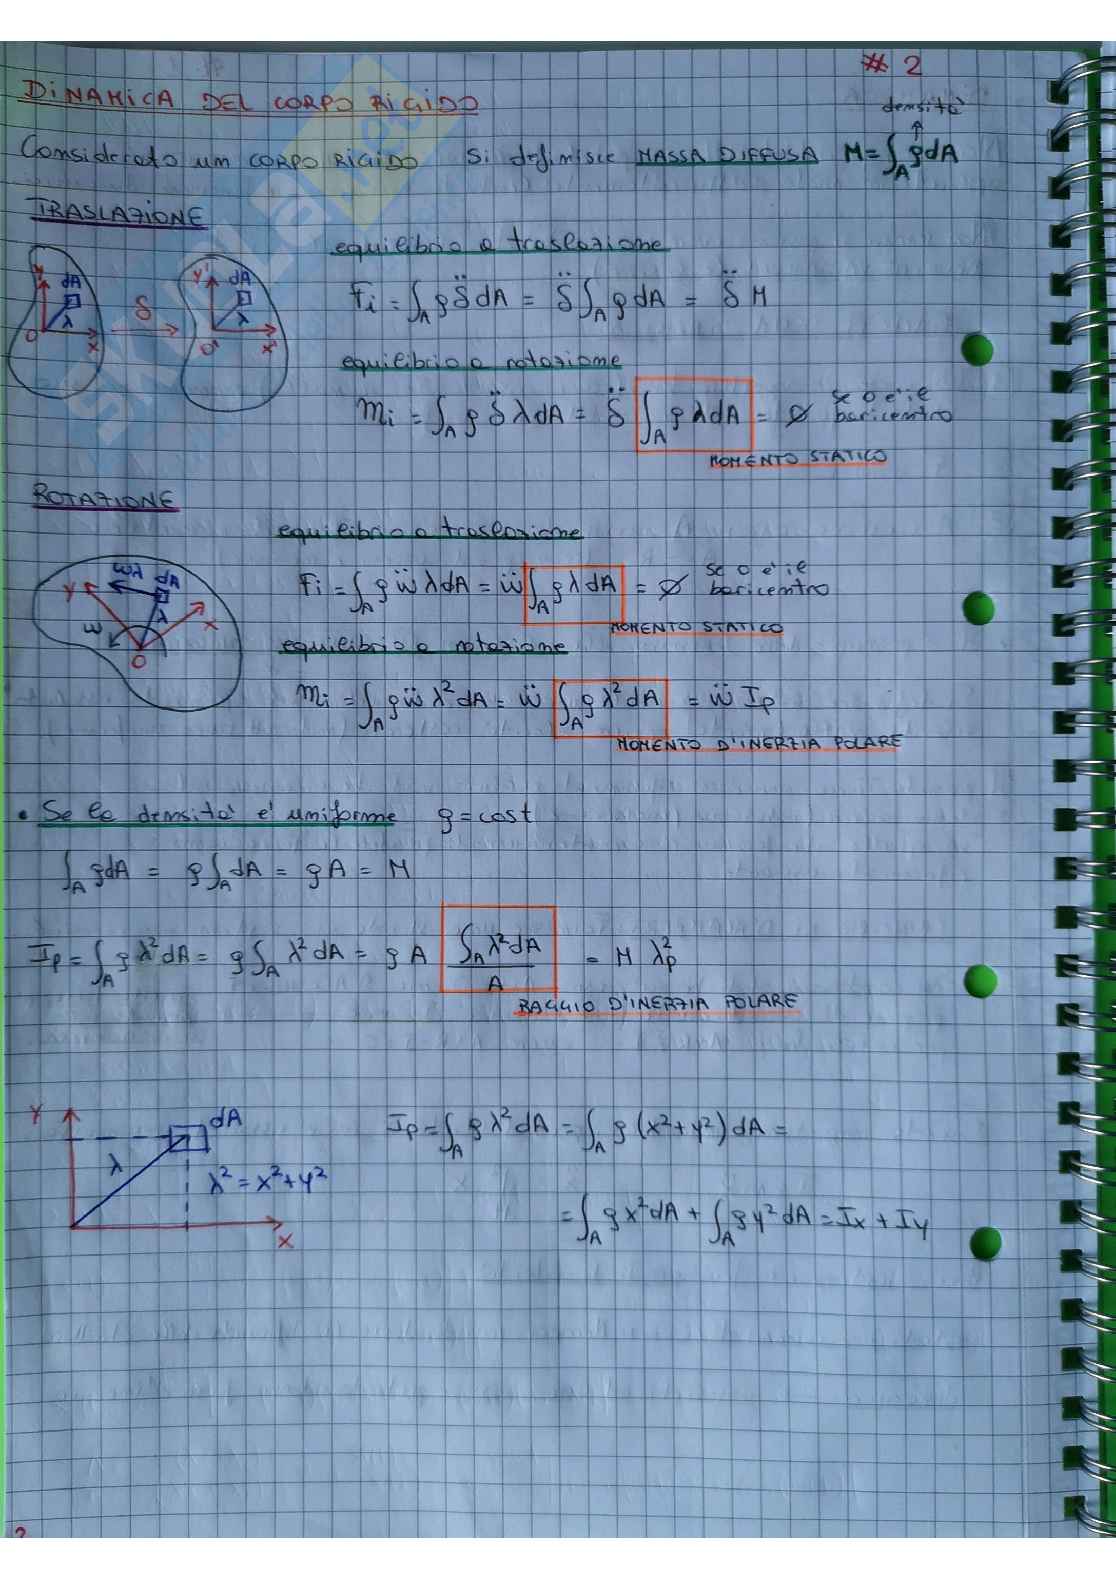 # 2
DINAMICA DEL CORPO RIGIDO
densità
Considerato un CORPO RIGIDO si definisce MASSA DIFFUSA M=∫_A ρdA
TRASLAZIONE
equilibrio a traslazione
Y dA λ O X δ Y' dA λ O' X'
Fi = ∫_A ρ δ̈ dA = δ̈ ∫_A ρ dA = δ̈ M
equilibrio a rotazione
Mi = ∫_A ρ δ̈ λ dA = δ̈ ∫_A ρ λ dA = ∅ se o è il baricentro
MOMENTO STATICO
ROTAZIONE
equilibrio a traslazione
ωλ dA Y λ X ω O
Fi = ∫_A ρ ẅ λ dA = ẅ ∫_A ρ λ dA = ∅ se o è il baricentro
MOMENTO STATICO
equilibrio a rotazione
Mi = ∫_A ρ ẅ λ² dA = ẅ ∫_A ρ λ² dA = ẅ Ip
MOMENTO D'INERZIA POLARE
• Se la densità è uniforme ρ = cost
∫_A ρdA = ρ∫_A dA = ρA = M
Ip = ∫_A ρ λ² dA = ρ∫_A λ² dA = ρ A ∫_A λ² dA / A = M λp²
RAGGIO D'INERZIA POLARE
Y dA λ λ² = x² + y² X
Ip = ∫_A ρ λ² dA = ∫_A ρ (x² + y²) dA =
= ∫_A ρ x² dA + ∫_A ρ y² dA = Ix + Iy
2